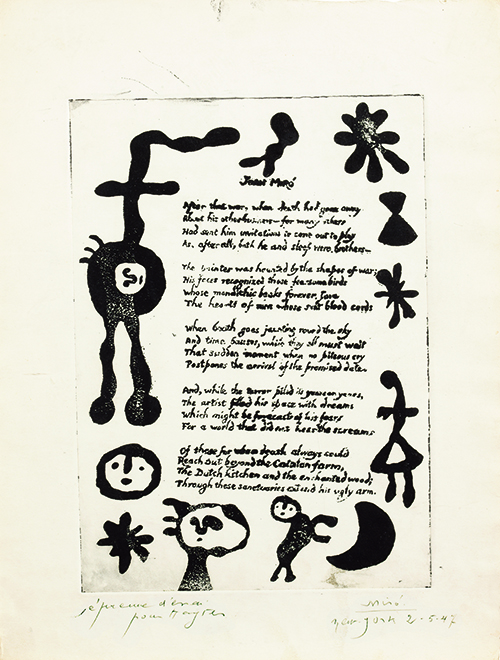 Joan Miró
After that war, when death had gone away
About his other business — for many others
Had sent him invitations to come out to play
As, after all, both he and sleep were brothers —
The painter was haunted by the shapes of war;
His faces recognized those fearsome birds
Whose monarchic beaks forever tore
The hearts of men whose
When Death goes jaunting round the sky
And time pauses, while they all must wait
That sudden moment when no piteous cry
Postpones the arrival of the promised date.
And, while the terror piled its years on years,
The artist filled his space with dreams
Which might be forecasts of his fears
For a world that did not hear the screams
Of those for whom death always could
Reach out beyond the Catalan farm,
The Dutch kitchen and the enchanted wood;
Through these sanctuaries extend his ugly arm.
épreuve d'essai
pour Hayter
Miró
New-York 2-5-47